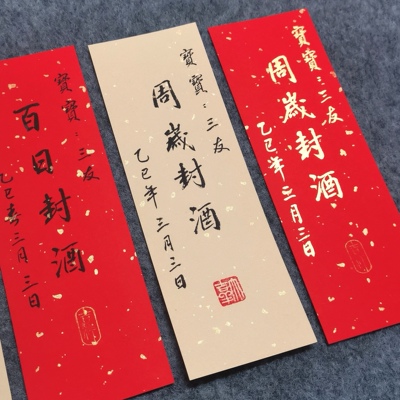 寶寶：三友
百日封酒
乙巳春 三月三日
寶寶：三友
周歲封酒
乙巳年 三月三日
寶寶：三友
周歲封酒
乙巳年 三月三日